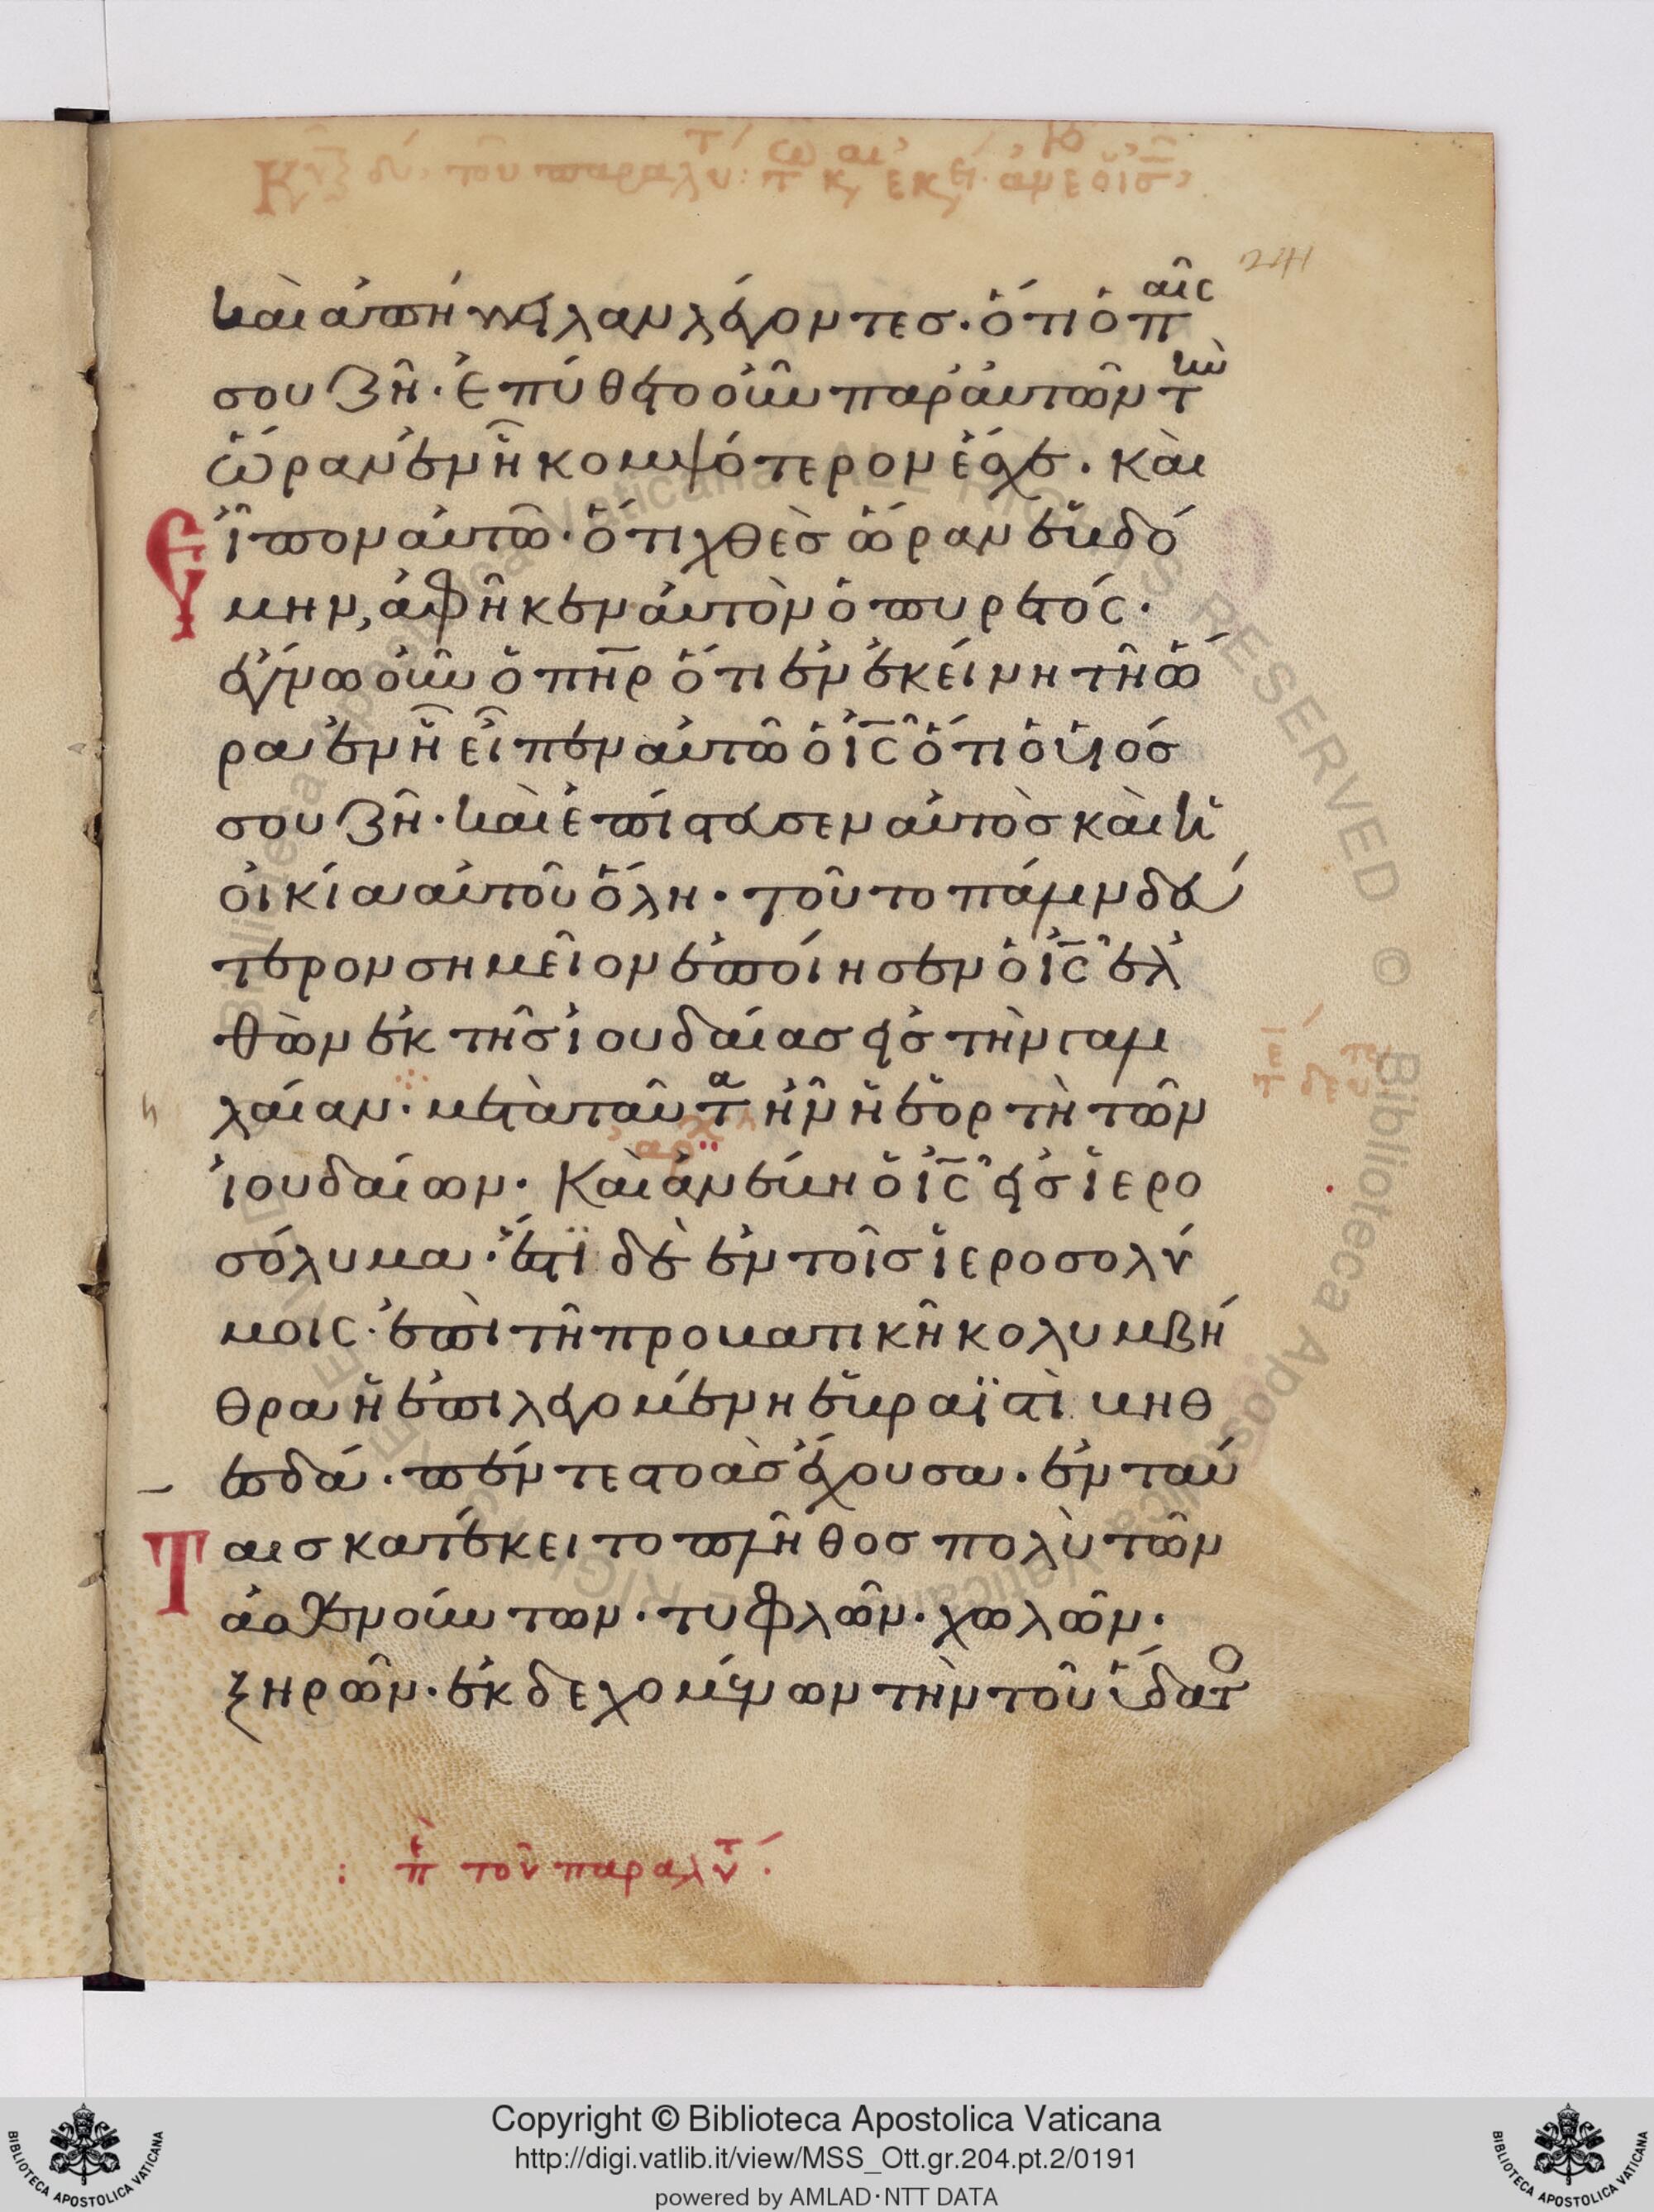 241
καὶ ἀπήγγειλαν λέγοντες. ὅτι ὁ παῖς
σου ζῆ. ἐπύθετο οὖν παρ' αὐτῶν τὴν
ὥραν ἐν ἧ κομψότερον ἔσχε. καὶ
εἶπον αὐτῶ. ὅτι χθὲς ὥραν ἑβδό
μην, ἀφῆκεν αὐτὸν ὁ πυρετός.
ἔγνω οὖν ὁ πηρ ὅτι ἐν ἐκείνη τῆ ὥ
ρα ἐν ἧ εἶπεν αὐτῶ ὁ ις ὅτι ὁ υἱός
σου ζῆ. καὶ ἐπίστευσεν αὐτὸς καὶ ἡ
οἰκία αὐτοῦ ὅλη. τοῦτο πάλιν δεύ
τερον σημεῖον ἐποίησεν ὁ ις ἐλ
θὼν ἐκ τῆς ἰουδαίας εἰς τὴν γαλι
λαίαν. μετὰ ταῦτα ἦν ἡ ἑορτὴ τῶν
ἰουδαίων. Καὶ ἀνέβη ὁ ις εἰς ἱερο
σόλυμα. ἔστι δὲ ἐν τοῖς ἱεροσολύ
μοις. ἐπὶ τῆ προβατικῆ κολυμβή
θρα ἡ ἐπιλεγομένη ἑβραϊστὶ βηθ
εσδά. πέντε στοὰς ἔχουσα. ἐν ταύ
ταις κατέκειτο πλῆθος πολὺ τῶν
ἀσθενούντων. τυφλῶν. χωλῶν.
ξηρῶν. ἐκδεχομένων τὴν τοῦ ὕδατο
: π τοῦ παραλυτ.
Copyright © Biblioteca Apostolica Vaticana
http://digi.vatlib.it/view/MSS_Ott.gr.204.pt.2/0191
powered by AMLAD·NTT DATA
BIBLIOTECA APOSTOLICA VATICANA
BIBLIOTECA APOSTOLICA VATICANA